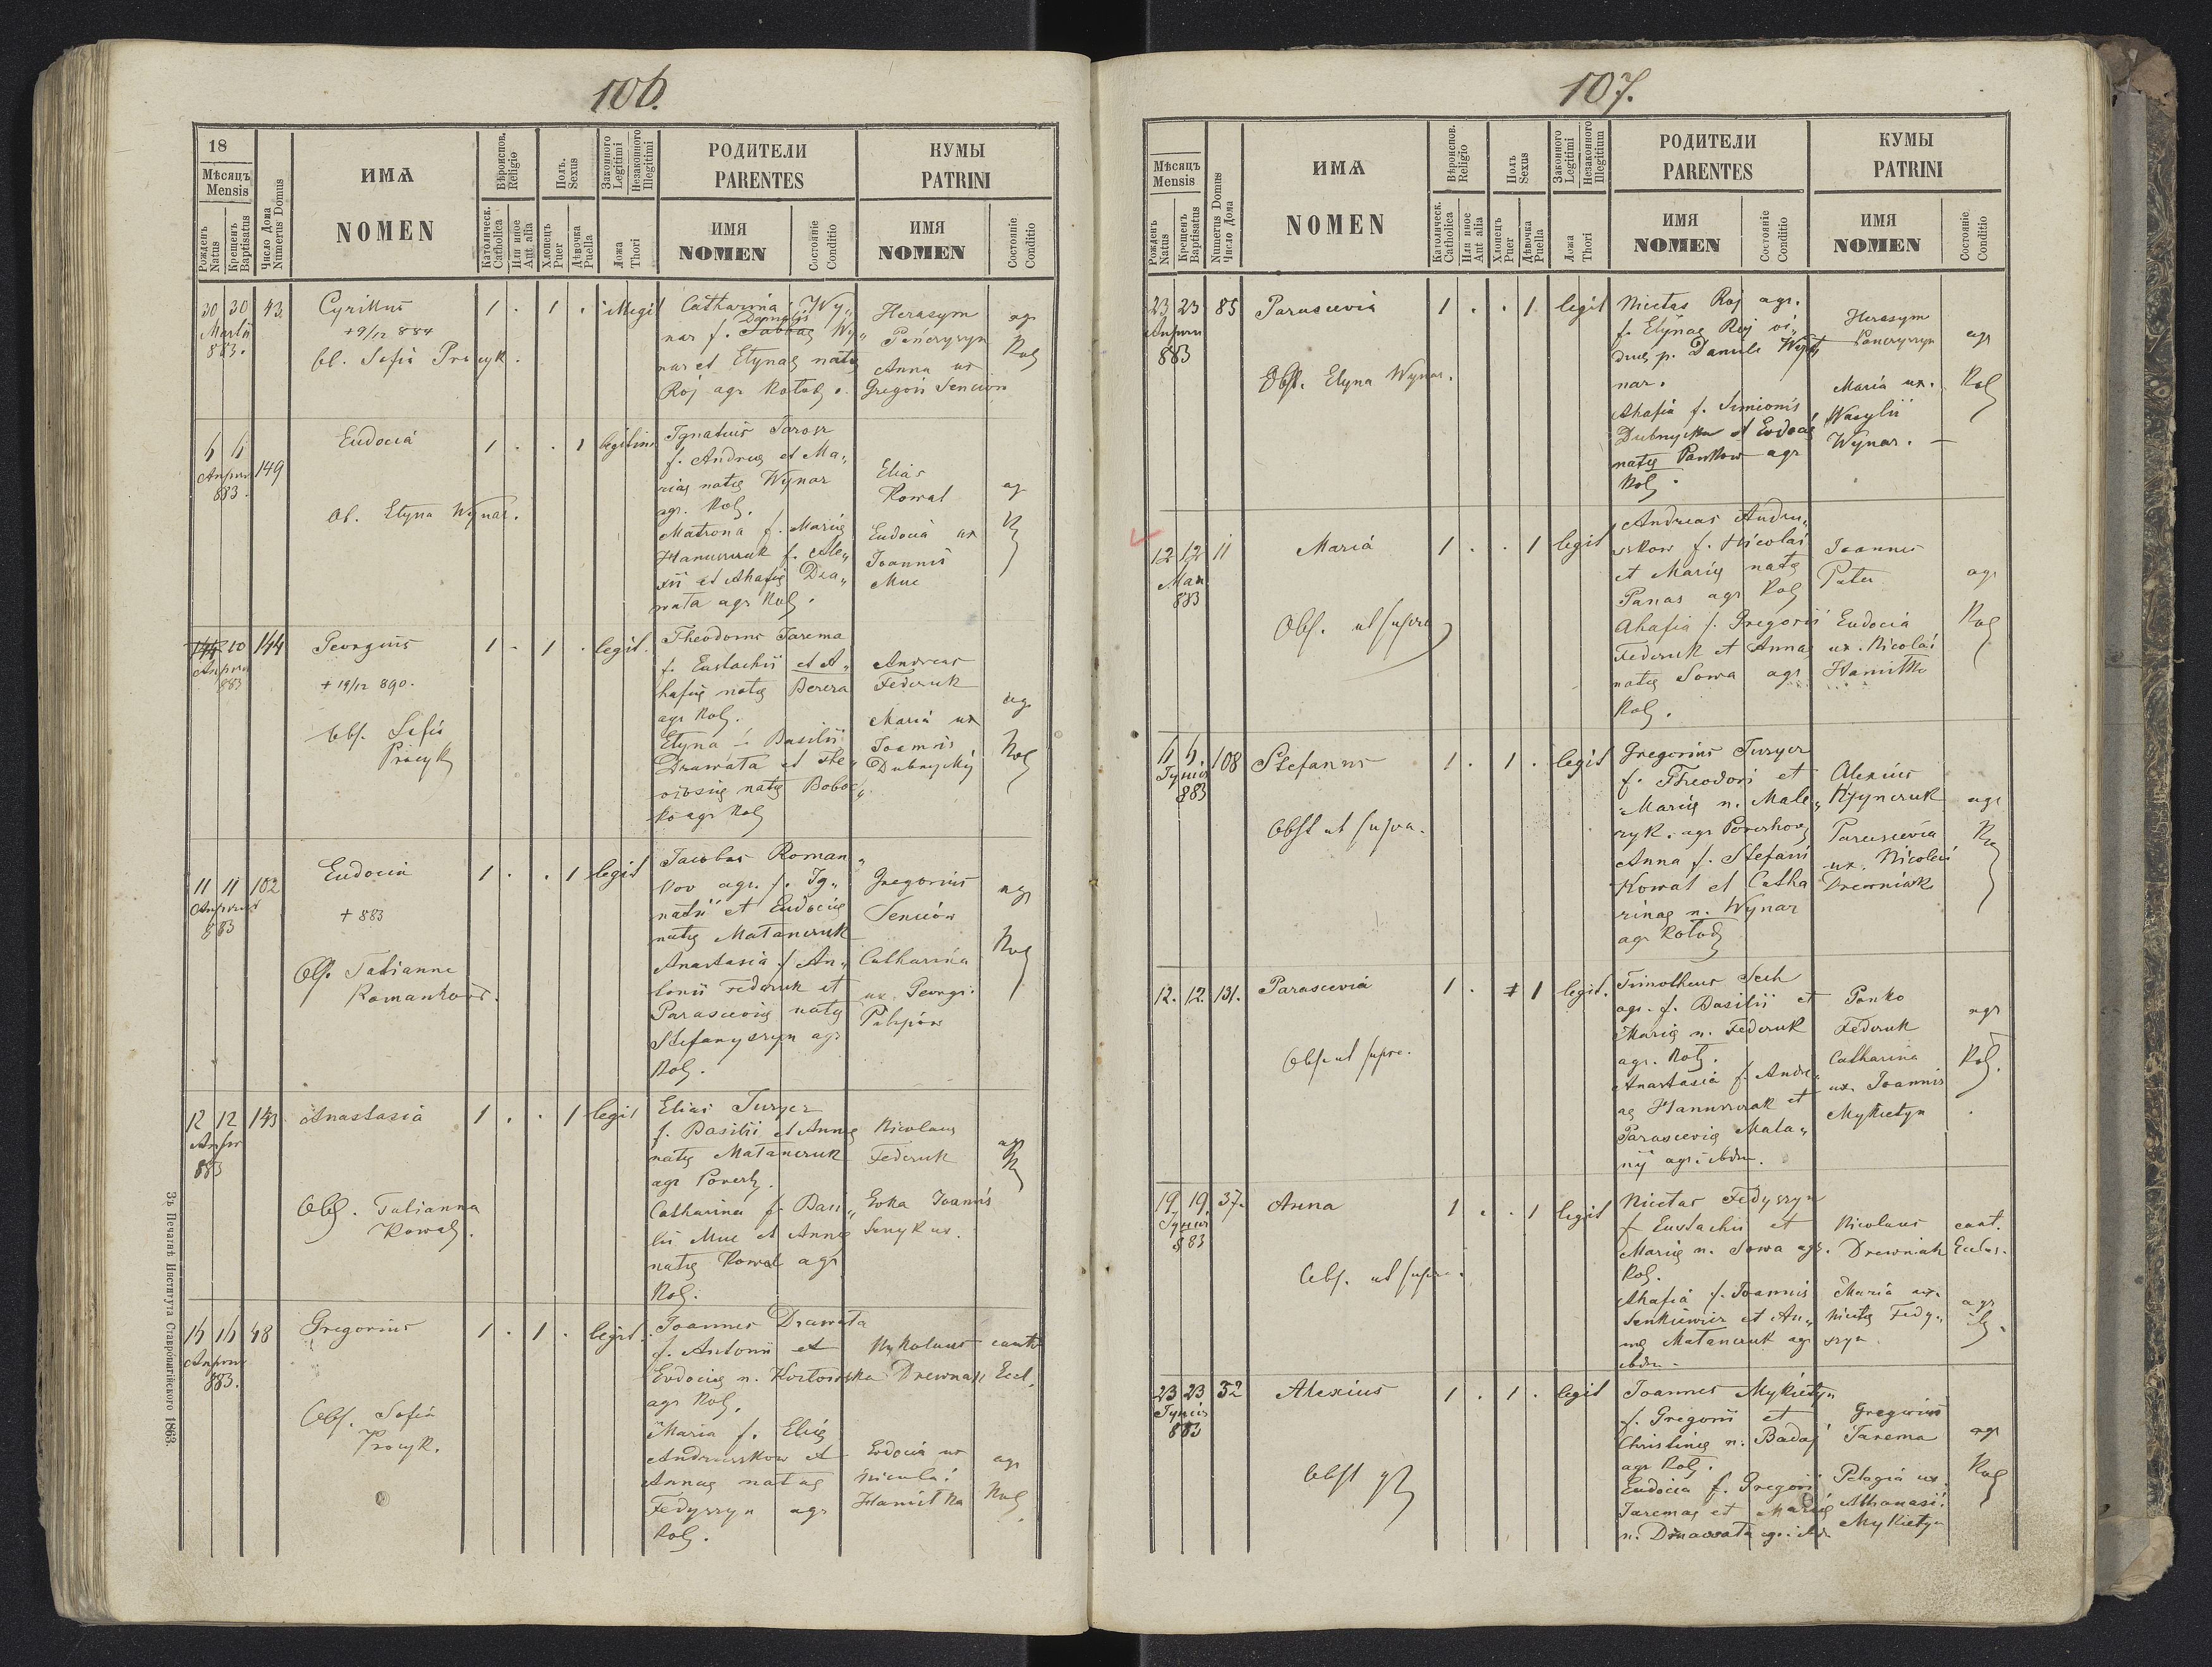 106.
18
Мѣсяцъ
Mensis
Рожденъ
Natus
Крещенъ
Baptisatus
Число Дома
Numerus Domus
ИМѦ
NOMEN
Вѣроиспов.
Religio
Католическ.
Catholica
Или иное
Aut alia
Полъ.
Sexus
Хлопецъ
Puer
Дѣвочка
Puella
Законного
Legitimi
Незаконного
Illegitimi
Ложа
Thori
РОДИТЕЛИ
PARENTES
ИМЯ
NOMEN
Состояніе
Conditio
КУМЫ
PATRINI
ИМЯ
NOMEN
Состояніе
Conditio
30 30 43
Martii
883.
Cyrillus
+ 9/12 884
Ob. Sofia Procyk.
1 . 1 . illegit
Catharina Wy„
nar f. Danielis Wy„
nar et Elynae natae
Roj agr
Herasym
Panczyszyn
Anna ux
Gregorii Senciów
agr
Rol
149
883.
Eudocia
Ob. Elyna Wynar.
1 . . 1 legitim
Ignatius Jarosz
f. Andreae et Ma„
riae natae Wynar
agr. Rol.
Matrona f. Mariae
Hanuszczuk f. Ale„
xii et Ahafiae Dra„
wata agr Rol.
Elias
Kowal
Eudocia ux
Joannis
Muc
10 144
883
Georgius
+ 19/12 890.
Obs. Sofia
Procyk
1 . 1 . legit.
Theodorus Jarema
f. Eustachii et A„
hafiae natae Bereza
agr Rol.
Elyna f. Basilii
Drawata et
natae Bobo„
ko agr Rol
Andreas
Federuk
Maria ux
Joannis
Dubnyckij
agr
Rol
11 11 102
883
Eudocia
+ 883
Obs. Tatianna
Romankow.
1 . . 1 legit
Jacobus Roman„
kov agr. f. Ig„
natii et Eudociae
natae Matanczuk
Anastasia f. An„
tonii Federuk et
Parasceviae natae
Stefanyszyn agr
Rol.
Gregorius
Senciów
Catharina
ux. Georgi.
Pilipów
agr
Rol
12 12 143
883
Anastasia
Obs. Tatianna
Kowal.
1 . . 1 legit
Elias Turzer
f. Basilii et Annae
natae Matanczuk
agr Poverh.
Catharina f. Basi„
lii Muc et Annae
natae Kowal agr
Rol.
Nicolaus
Federuk
Evka Joannis
Senyk ux.
agr
16 16 48
883.
Gregorius
Obs. Sofia
Procyk.
1 . 1 . legit.
Joannes Drawata
f. Antonii et
Evdociae n. Kozłowska
agr Rol.
Maria f. Eliae
Andruszkow et
Annae natae
Fedyszyn agr
Rol.
Mykolaus
Drewniak
Evdocia ux
Nicolai
Hamitka
cantr
Eccl.
agr
Rol.
Зъ Печатнѣ Института Ставропигійского 1863.
107.
Мѣсяцъ
Mensis
Рожденъ
Natus
Крещенъ
Baptisatus
Numerus Domus
Число Дома
ИМѦ
NOMEN
Вѣроиспов.
Religio
Католическ.
Catholica
Или иное
Aut alia
Полъ
Sexus
Хлопецъ
Puer
Дѣвочка
Puella
Законного
Legitimi
Незаконного
Illegitimi
Ложа
Thori
РОДИТЕЛИ
PARENTES
ИМЯ
NOMEN
Состояніе
Conditio
КУМЫ
PATRINI
ИМЯ
NOMEN
Состояніе
Conditio
23 23 85
883
Parascevia
Obst. Elyna Wynar.
1 . . 1 legit
Nicetas Roj agr.
f. Elynae Roj vi„
duae p. Danile Wy„
nar.
Ahafia f. Simionis
Dubnycka et Evdociae
natae Pankow agr
Rol.
Herasym
Panczyszyn
Maria ux.
Wasylii
Wynar. —
agr
Rol
12 12 11
Maii
883
Maria
Obs. ut supra
1 . . 1 legit
Andreas Andru„
szkow f. Nicolai
et Mariae natae
Panas agr Rol
Ahafia f. Gregorii
Federuk et Annae
natae Sowa agr
Rol.
Joannes
Pater
Eudocia
ux. Nicolai
Hamitka
agr
Rol
108
883
Stefanus
Obst ut supra.
1 . 1 . legit
Gregorius Turzer
f. Theodori et
Mariae n. Male„
zyk. agr
Anna f. Stefani
Kowal et Catha
rinae n. Wynar
agr
Alexius
Parascevia
ux. Nicolai
Drewniak
agr
12. 12. 131.
Parascevia
Obs. ut supra.
1 . 1 legit.
Timotheus Sech
agr. f. Basilii et
Mariae n. Federuk
agr. Rol.
Anastasia f. Andre„
ae Hanuszczak et
Parasceviae Mala„
nij agr.
Panko
Federuk
Catharina
ux. Joannis
Mykietyn
agr
Rol.
19 19 37.
883
Anna
Obs. ut supra.
1 . . 1 legit
Nicetas Fedyszyn
f. Eustachii et
Mariae n. Sowa agr.
Rol.
Ahafia f. Joannis
Senkiewicz et An„
nae Matanczuk agr
Nicolaus
Drewniak
Maria ux.
Nicetae Fedy„
szyn.
cant.
Eccles.
agr
23 23 32
883
Alexius
Obst
1 . 1 . legit
Joannes Mykietyn
f. Gregorii et
Christinae n. Badaj
agr Rol.
Eudocia f. Gregorii
Jaremae et Mariae
n. Drawata agr.
Gregorius
Jarema
Pelagia ux.
Athanasii
Mykietyn
agr
Rol